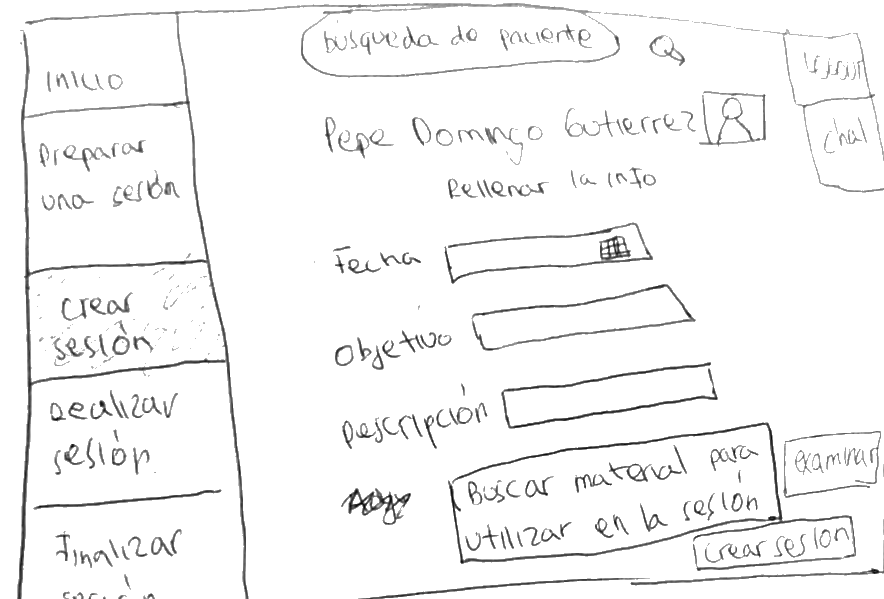 Inicio
Preparar
una sesión
crear
sesión
Realizar
sesión
Finalizar
sesión
búsqueda de paciente
Pepe Domingo Gutierrez
Rellenar la info
Fecha
Objetivo
Descripción
Buscar material para
utilizar en la sesión
examinar
crear sesión
chat